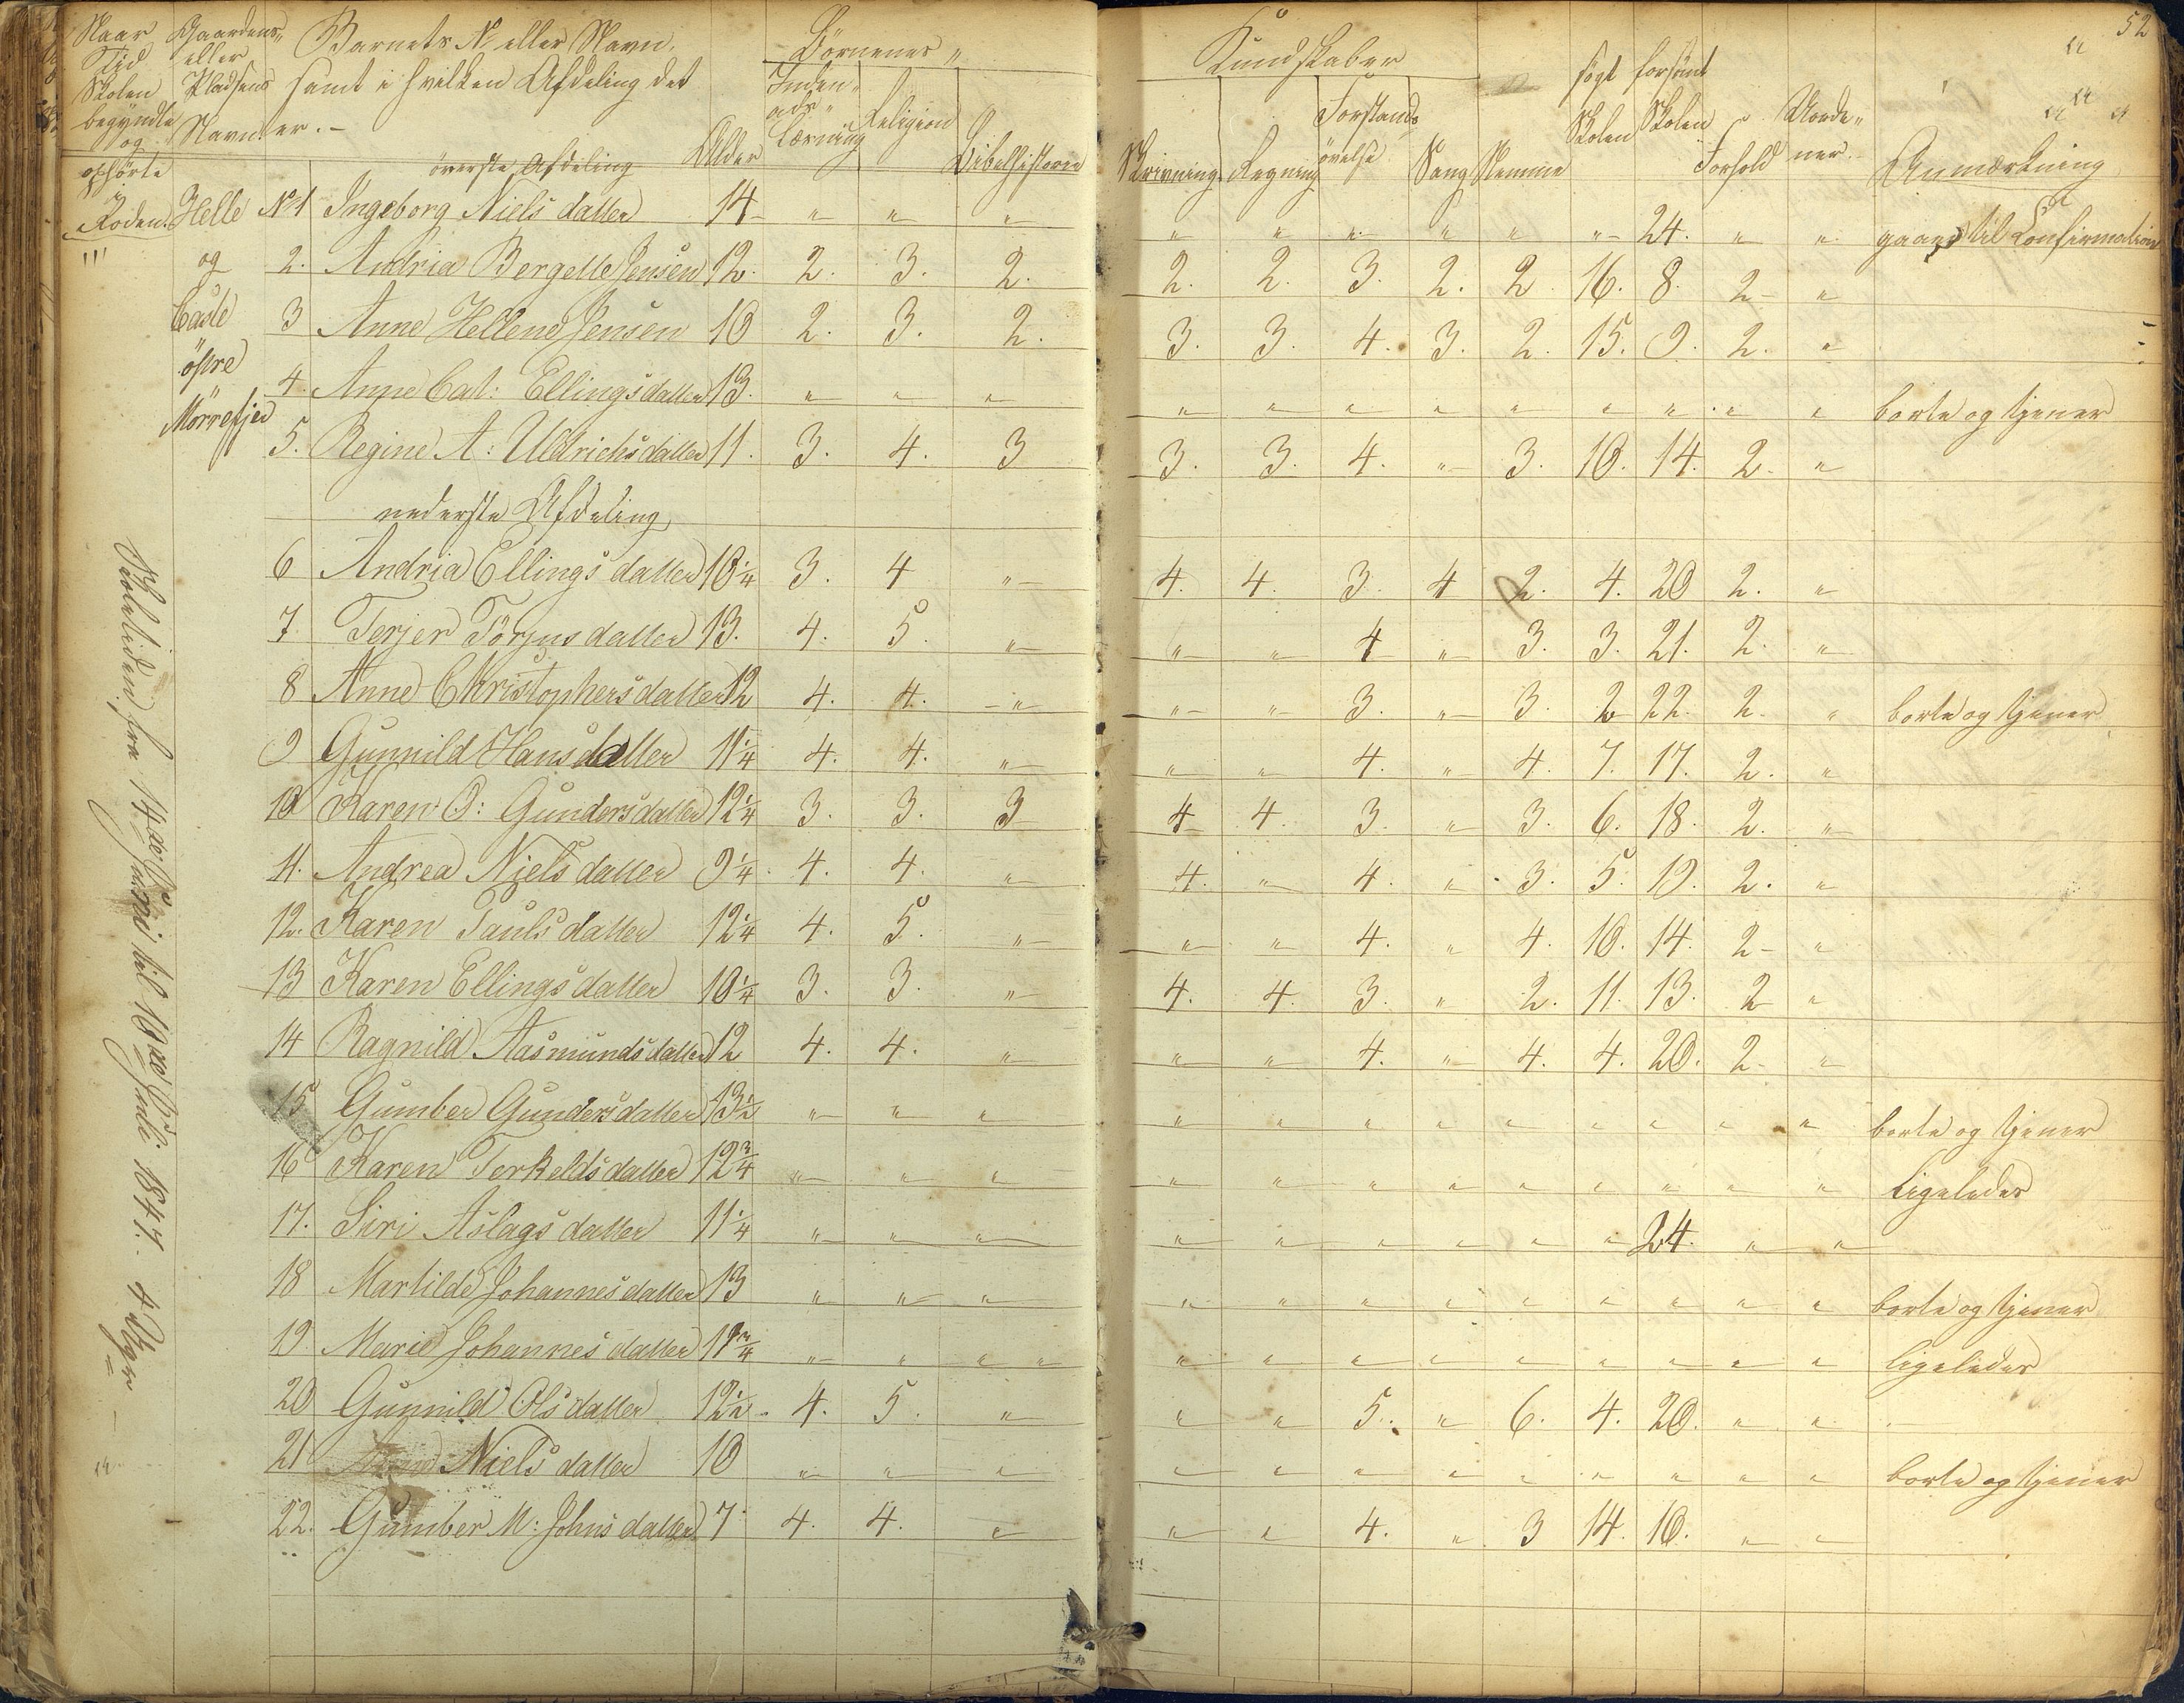 52
Naar Tid Skolen begyndte og ophörte
Gaardens eller Pladsens Navn.
Barnets No eller Navn, samt i hvilken Afdeling det er. -
Alder
Börnenes
Inden- ads- Læsning
Religion
Bibelhistorie
Kundskaber
Skrivning
Regning
Forstands övelse
Sang
Stemme
sögt Skolen
forsömt Skolen
Forhold
Anmærkning
överste Afdeling
i Roden.
Helle og Casle öfre Mörrefjer
Skoletiden fra 14de Juni til 10de Juli 1847. 4 Uger
No 1 Ingeborg Niels datter 14 " " " " " " " " " 24. " " gaaer til Confirmation
2. Andria Bergette Jensen 12. 2. 3. 2. 2. 2. 3. 2. 2 16. 8. 2 "
3 Anne Hellene Jensen 10 2. 3. 2. 3. 3. 4. 3. 2. 15. 9. 2. "
4. Anne Cat: Ellingsdatter 13. " " " " " " " " " " " " borte og tjener
5. Regine A: Uldrichsdatter 11. 3. 4. 3 3. 3. 4. " 3. 10. 14. 2. "
nederste Afdeling
6 Andria Ellings datter 10 1/4 3. 4 " 4. 4. 3. 4 2. 4. 20 2. "
7 Terjer Törjus datter 13. 4. 5. " " " 4 " 3. 3. 21. 2. "
8 Anne Christophersdatter 12 4. 4. " " " 3. " 3. 2 22. 2. " borte og tjener
9 Gunnild Hans datter 11 1/4 4. 4. " " " 4. " 4. 7. 17. 2. "
10 Karen O: Gundersdatter 12 1/4 3. 3. 3 4 4. 3. " 3. 6. 18. 2. "
11. Andrea Niels datter 9 1/4 4. 4. " 4. " 4. " 3. 5. 19. 2. "
12. Karen Pauls datter 12 1/4 4. 5. " " " 4. " 4. 10. 14. 2 "
13 Karen Ellings datter 10 1/4 3. 3. " 4. 4. 3. " 2. 11. 13. 2 "
14 Ragnild Aasmunds datter 12 4. 4. " " " 4. " 4. 4. 20. 2. "
15 Gumber Gundersdatter 13 1/2 " " " " " " " " " " " " borte og tjener
16 Karen Terkelds datter 12 3/4 " " " " " " " " " " " " ligeledes
17. Siri Aslags datter 11 1/4 " " " " " " " " " 24. " "
18 Martilde Johannes datter 13 " " " " " " " " " " " " borte og tjener
19 Marie Johannes datter 11 3/4 " " " " " " " " " " " " " ligeledes
20 Gunnild Ols datter 12 1/2 4. 5. " " " 5. " 6. 4. 20. " "
21 Niels datter 10 " " " " " " " " " " " " borte og tjener
22. Gumber M: Johns datter 7 4. 4. " " " 4. " 3 14. 10. " "